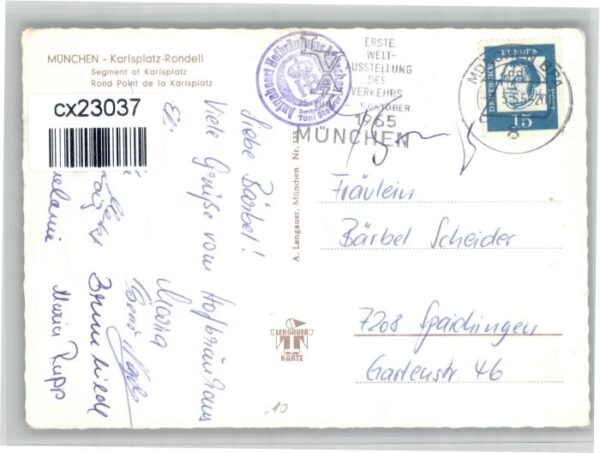 MÜNCHEN - Karlsplatz-Rondell
Segment of Karlsplatz
Rond Point de la Karlsplatz
cx23037
ERSTE
WELT-
AUSSTELLUNG
DES
VERKEHRS
OKTOBER
1965
MÜNCHEN
15
Liebe Bärbel!
Viele Grüße vom Hofbräuhaus
Maria
Brunhilde
Maria Rupp
A. Lengauer, München Nr.
LENGAUER
KARTE
Fräulein
Bärbel Scheider
7208 Spaichingen
Gartenstr. 46
.10